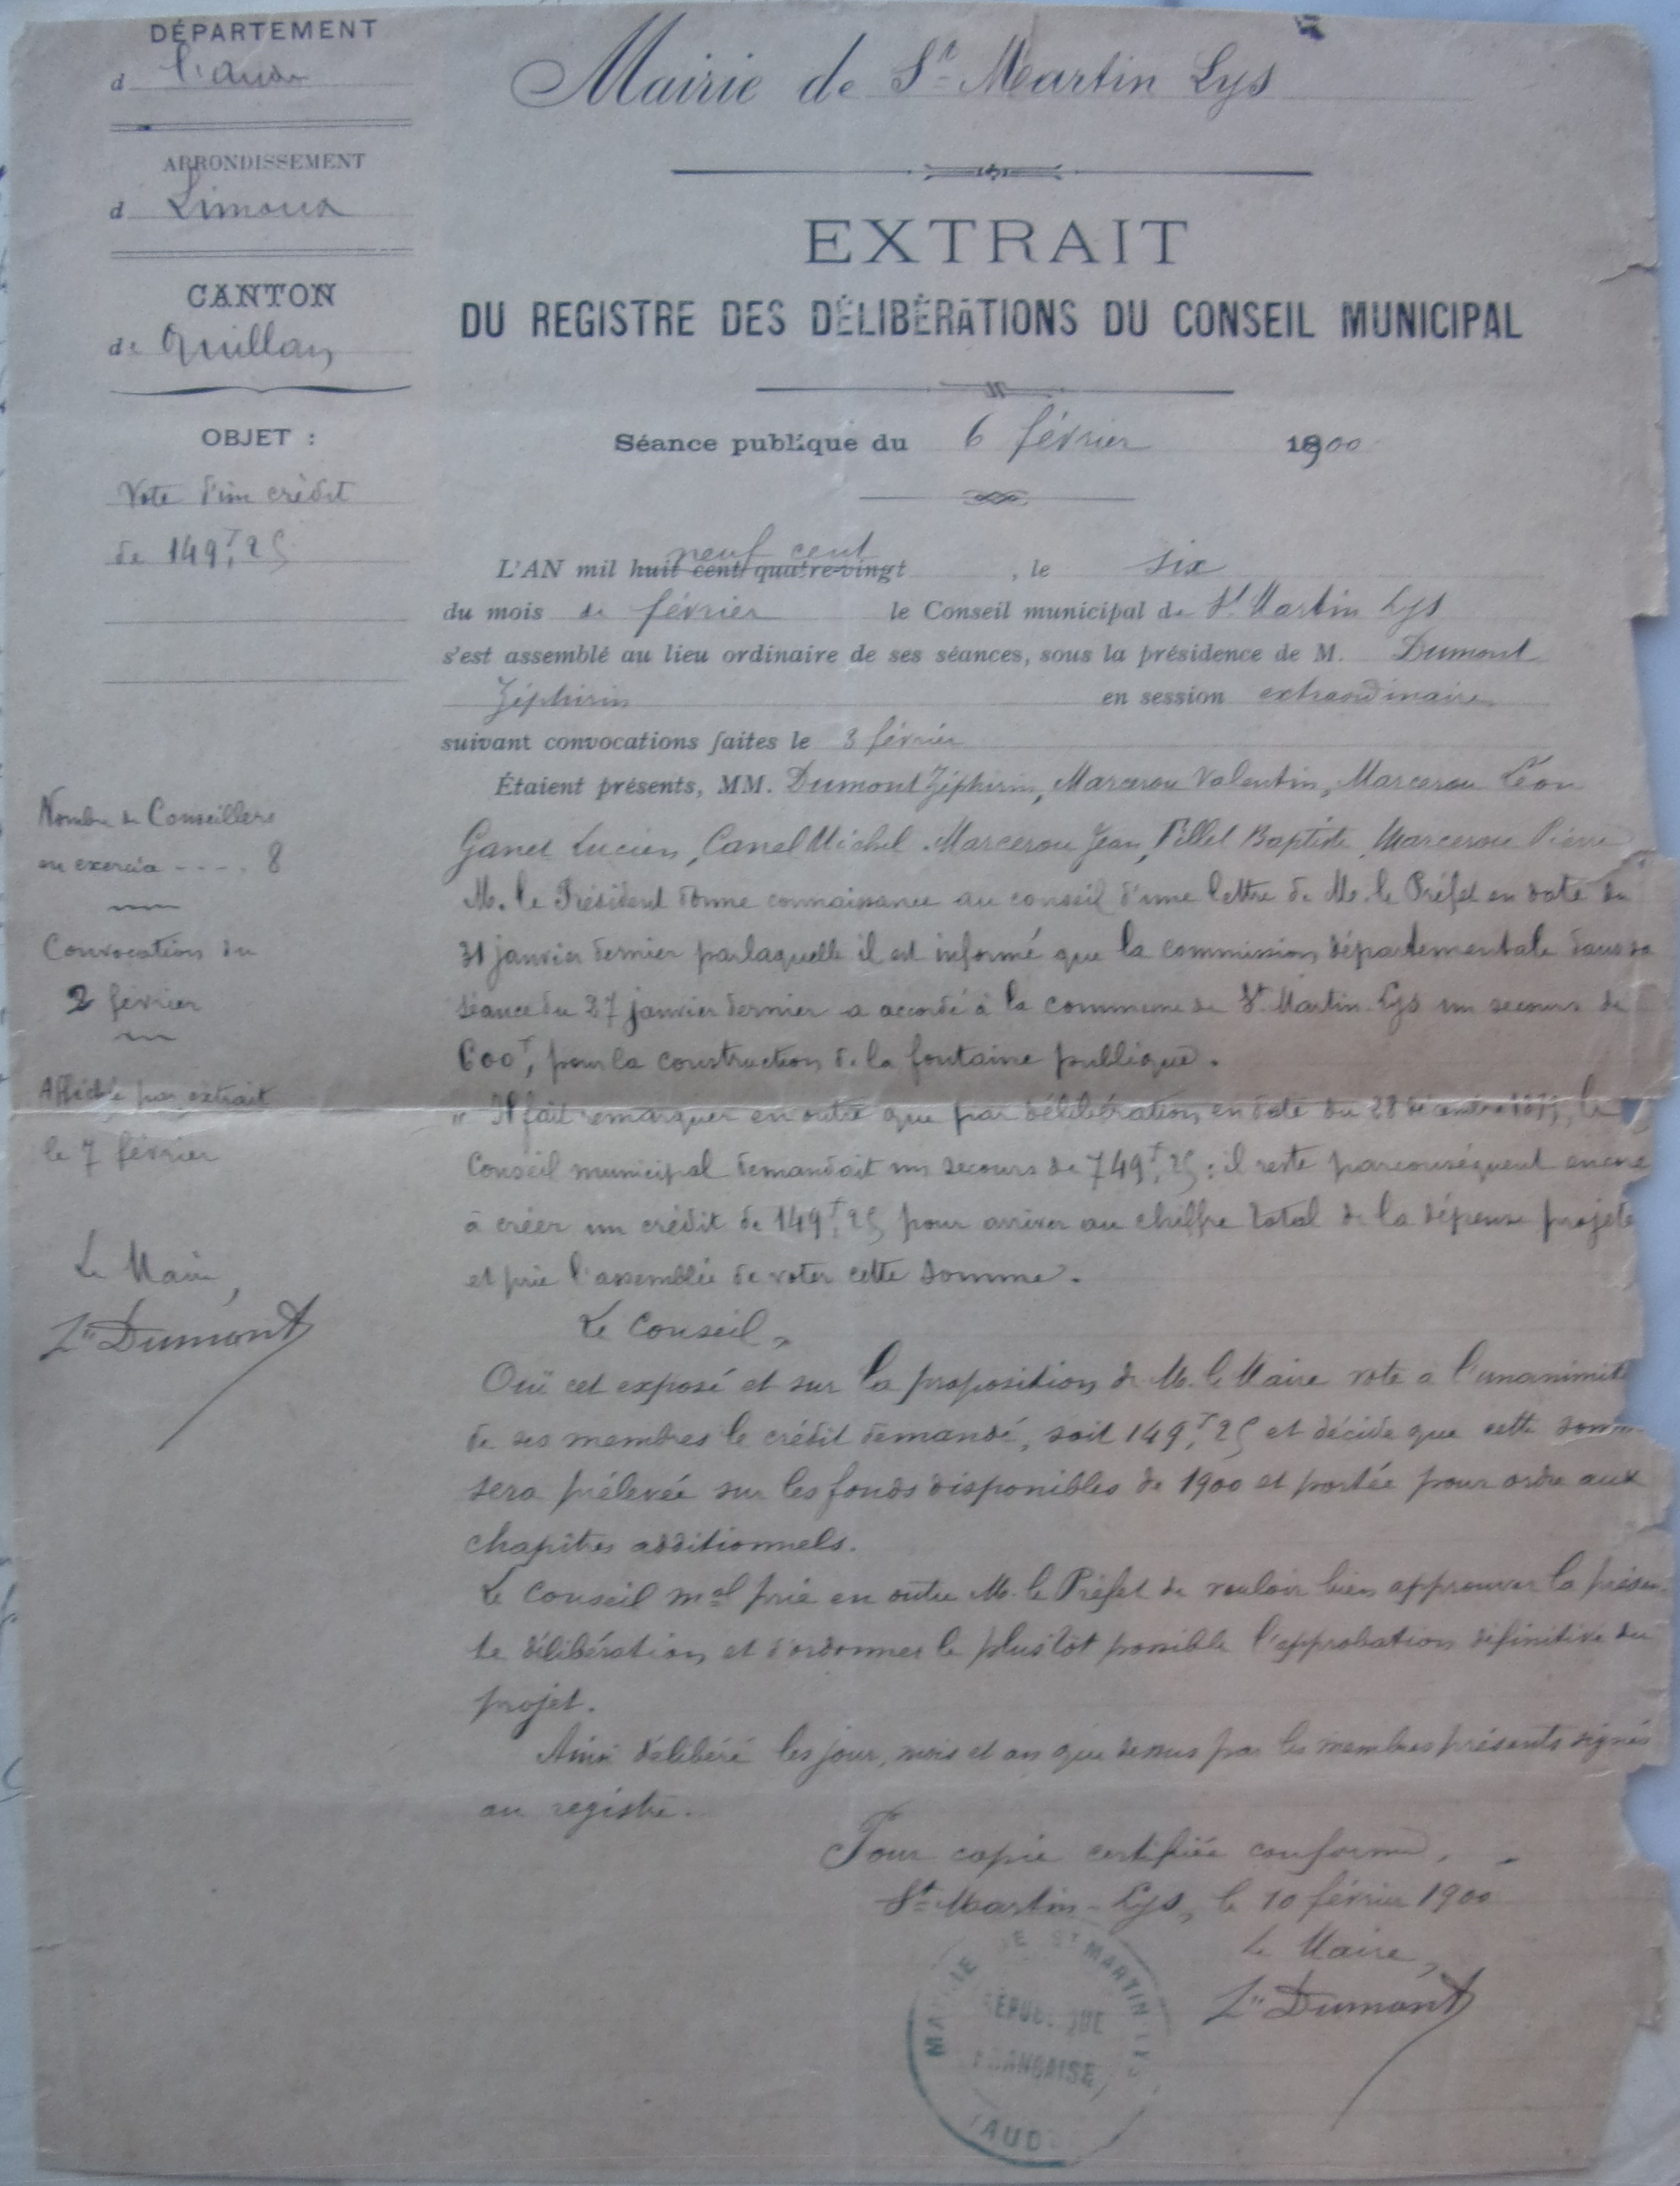 DÉPARTEMENT
d l'aude
ARRONDISSEMENT
d Limoux
CANTON
de Quillan
OBJET :
Vote d'un crédit
de 149f,25
Nombre de Conseillers
en exercice - - - . 8
Convocation du
3 février
Affiché par extrait
le 7 février
Le Maire,
Zin Dumont
Mairie de St Martin Lys
EXTRAIT
DU REGISTRE DES DÉLIBÉRATIONS DU CONSEIL MUNICIPAL
Séance publique du 6 février 1900
neuf cent
L'AN mil huit cent quatre-vingt , le six
du mois de février le Conseil municipal de St Martin Lys
s'est assemblé au lieu ordinaire de ses séances, sous la présidence de M. Dumont
Zéphirin en session extraordinaire
suivant convocations faites le 3 février
Étaient présents, MM. Dumont Zéphirin, Marcerou Valentin, Marcerou Léon
Ganet Lucien, Canel Michel. Marcerou Jean, Pillet Baptiste, Marcerou Pierre
M. le Président donne connaissance au conseil d'une lettre de M. le Préfet en date du
31 janvier dernier parlaquelle il est informé que la commission départementale dans sa
séance du 27 janvier dernier a accordé à la commune de St Martin Lys un secours de
600f, pour la construction de la fontaine publique.
" Il fait remarquer en outre que par délibération en date du 28 décembre, le
Conseil municipal demandait un secours de 749f,25 : il reste parconséquent encore
à créer un crédit de 149f,25 pour arriver au chiffre total de la dépense projetée
et prie l'assemblée de voter cette somme.
Le Conseil,
Ouï cet exposé et sur la proposition de M. le Maire vote à l'unanimité
de ses membres le crédit demandé, soit 149f,25 et décide que cette somme
sera prélevée sur les fonds disponibles de 1900 et portée pour ordre aux
chapitres additionnels.
Le Conseil mal prie en outre M. le Préfet de vouloir bien approuver la présen-
te délibération et d'ordonner le plustôt possible l'approbation définitive du
projet.
Ainsi délibéré les jour, mois et an que dessus par les membres présents signés
au registre.
Pour copie certifiée conforme,
St Martin-Lys, le 10 février 1900
Le Maire,
Zin Dumont
MAIRIE DE ST MARTIN LYS
RÉPUBLIQUE
FRANÇAISE
(AUDE)